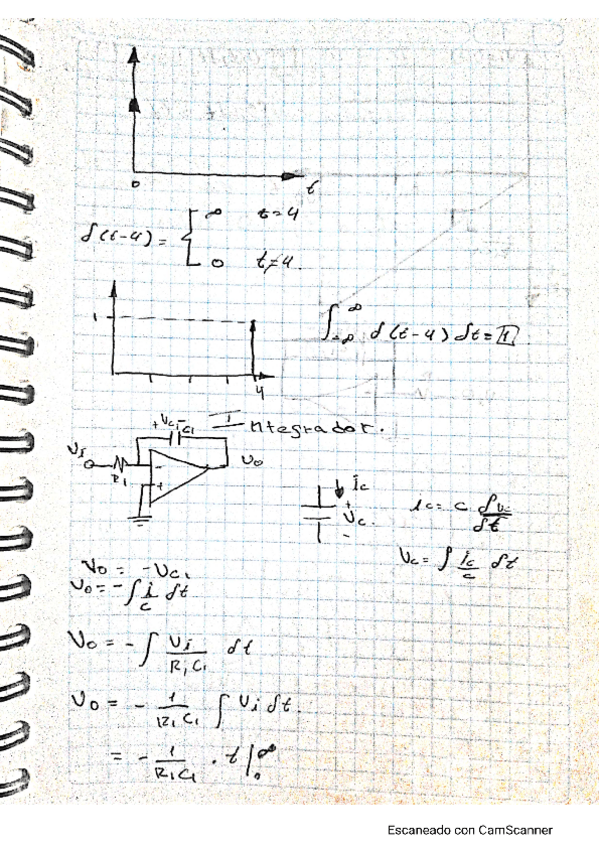 0 t
δ(t-4) = { ∞ t=4
0 t≠4.
1
4
∫_{-∞}^{∞} δ(t-4) δt = 1
Integrador.
+Vc1- C1
Vi R1 - + Vo
ic + Vc. -
ic = c δVc/δt
Vc = ∫ ic/c δt
Vo = -Vc1
Vo = -∫ i/c δt
Vo = -∫ Vi/R1C1 δt
Vo = - 1/R1C1 ∫ Vi δt.
= - 1/R1C1 · t |₀^∞
Escaneado con CamScanner